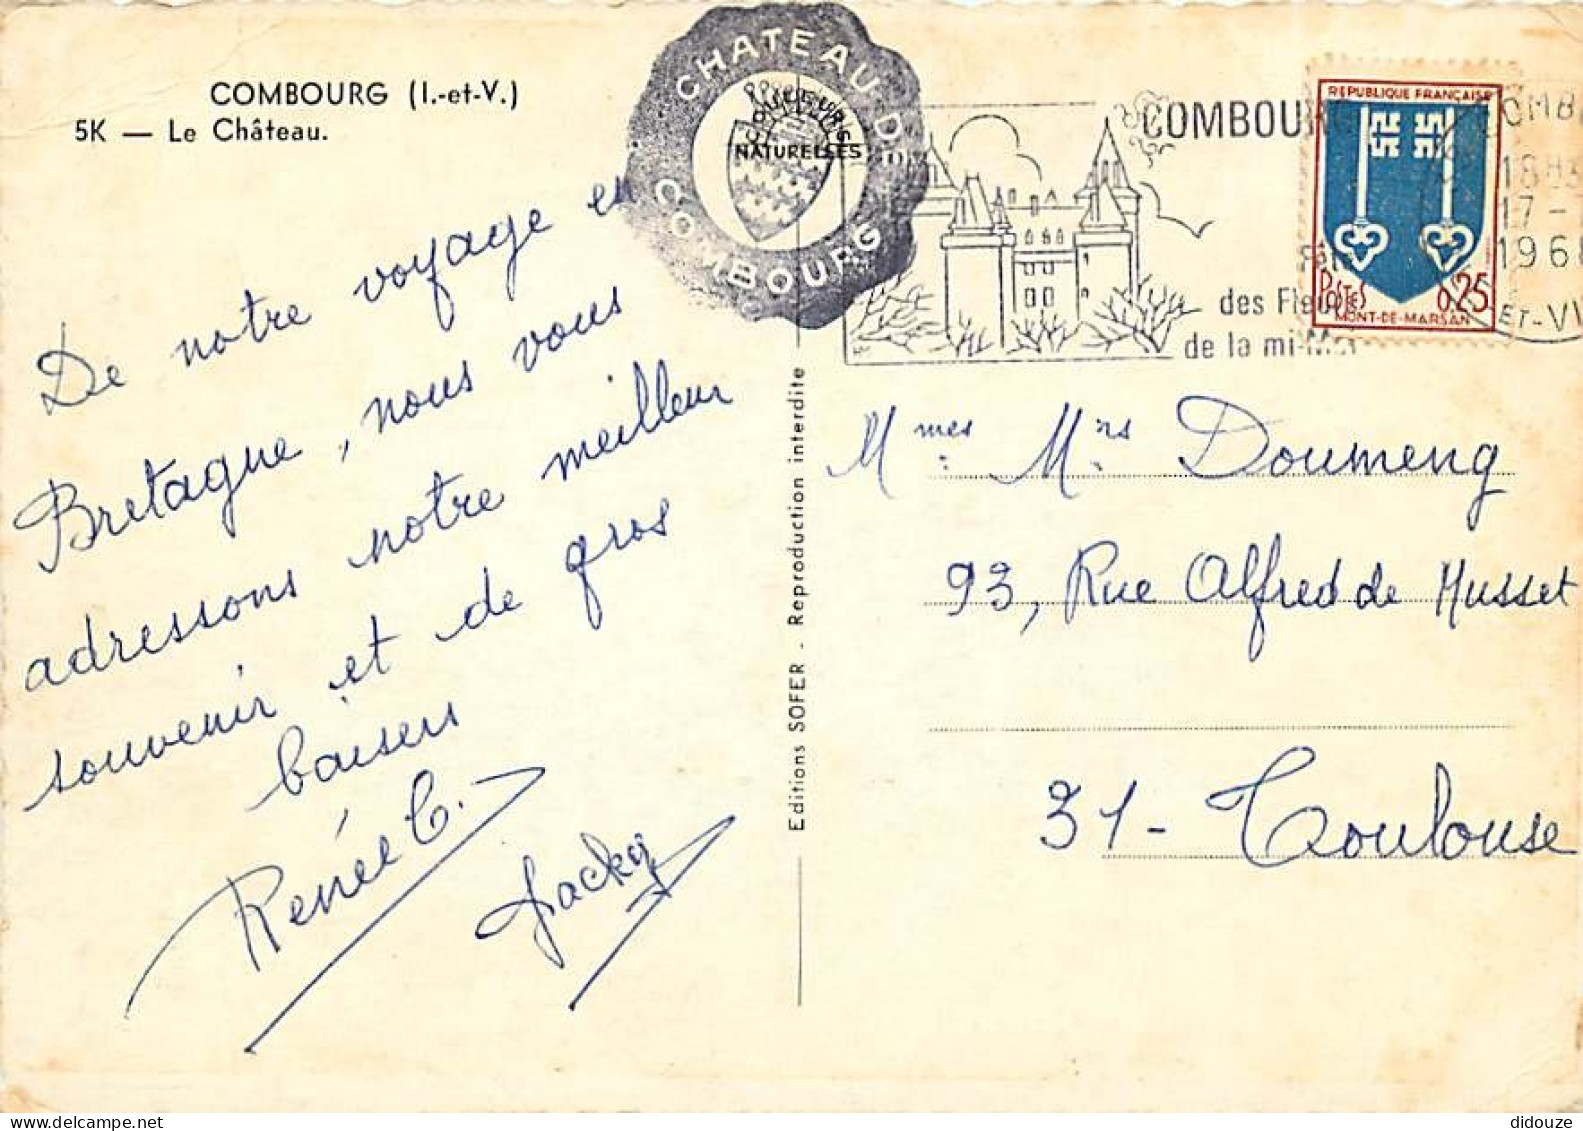 COMBOURG (I.-et-V.)
5K — Le Château.
CHATEAU DE
COMBOURG
COULEURS
NATURELLES
De notre voyage en
Bretagne, nous vous
adressons notre meilleur
souvenir et de gros
baisers
Renée C.
Jacky
Editions SOFER - Reproduction interdite
COMBOURG
des Fleurs
de la mi-Mai
REPUBLIQUE FRANÇAISE
POSTES
0,25
MONT-DE-MARSAN
COMB
18H3
17 -
196
ET-VI
Mmes Mrs Doumeng
93, Rue Alfred de Musset
31- Toulouse
didouze